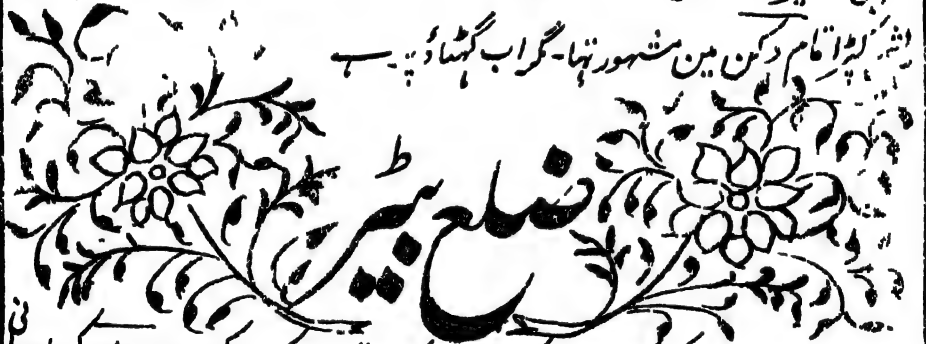 کپڑا تمام دکن مین مشہور تہا۔ مگر اب گھٹاؤ پر ہے
ضلع بیڑ